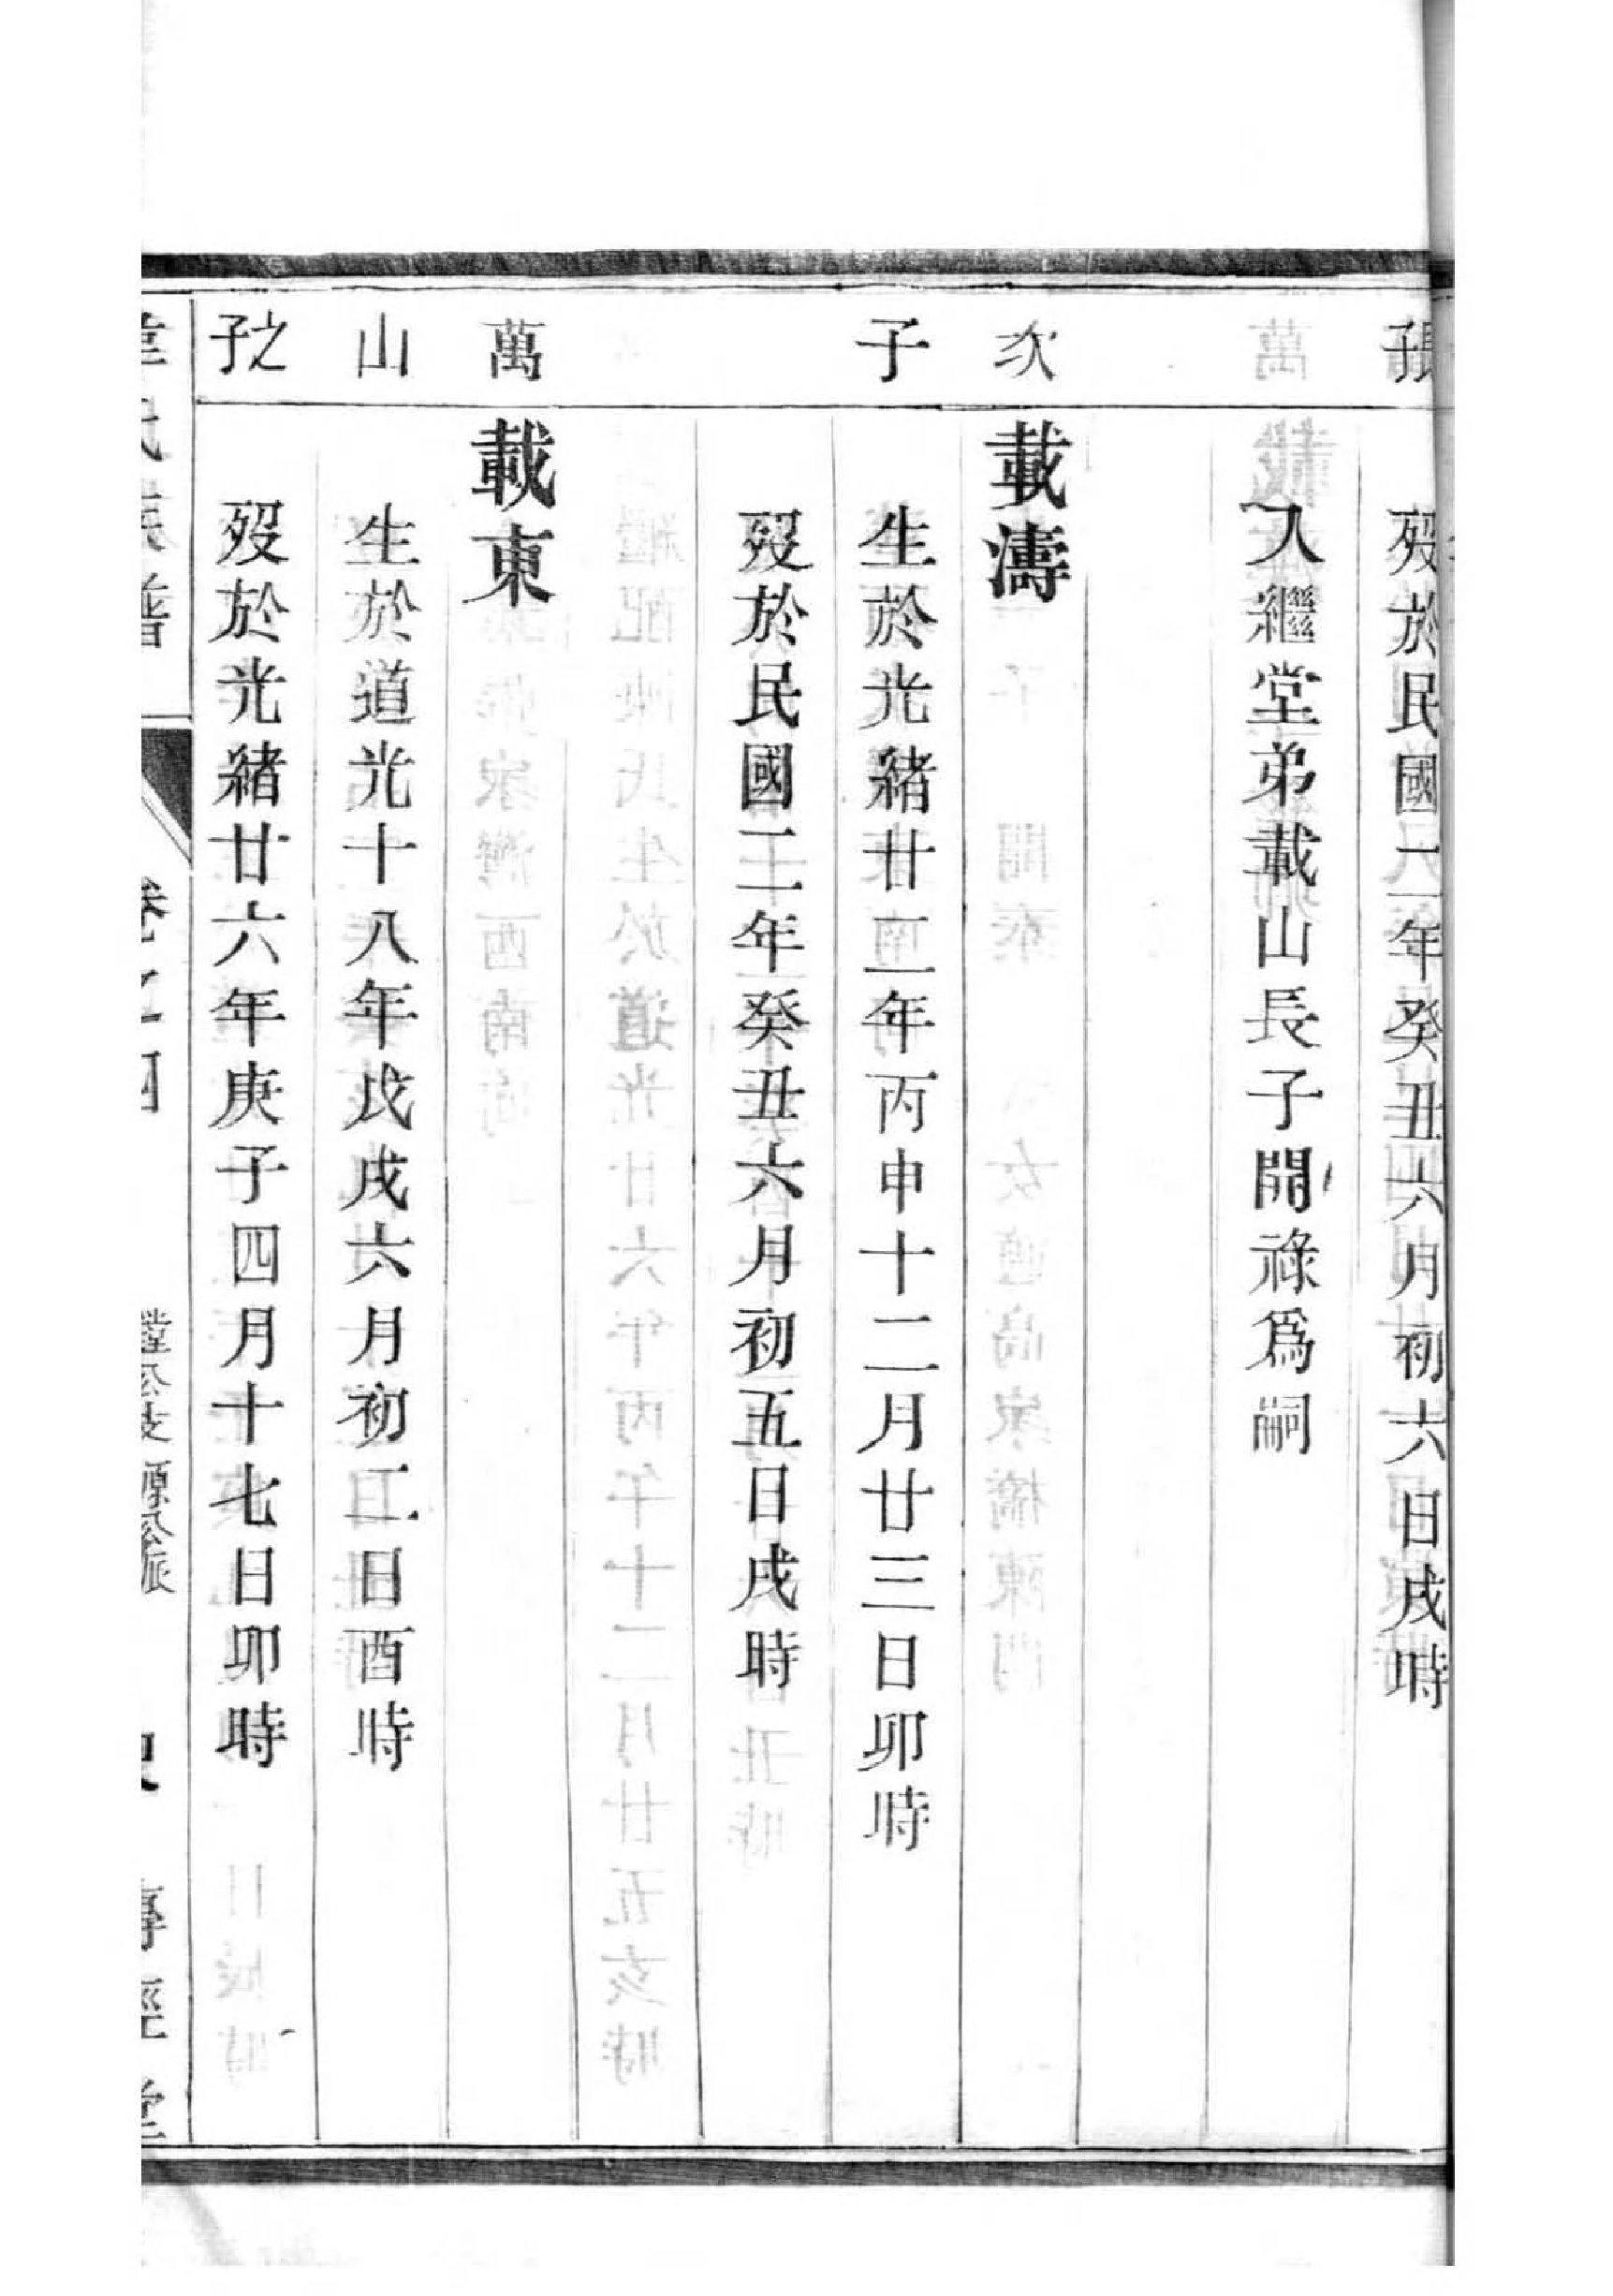 張子
歿於民國二年癸丑六月初六日戌時
入繼堂弟載山長子開祿爲嗣
次
載濤
子
生於光緒廿二年丙申十二月廿三日卯時
歿於民國二年癸丑六月初五日戌時
萬
載東
山
生於道光十八年戊戌六月初二日酉時
之子
歿於光緒廿六年庚子四月十七日卯時
氏族譜
卷之四
公支源公派
傳經堂